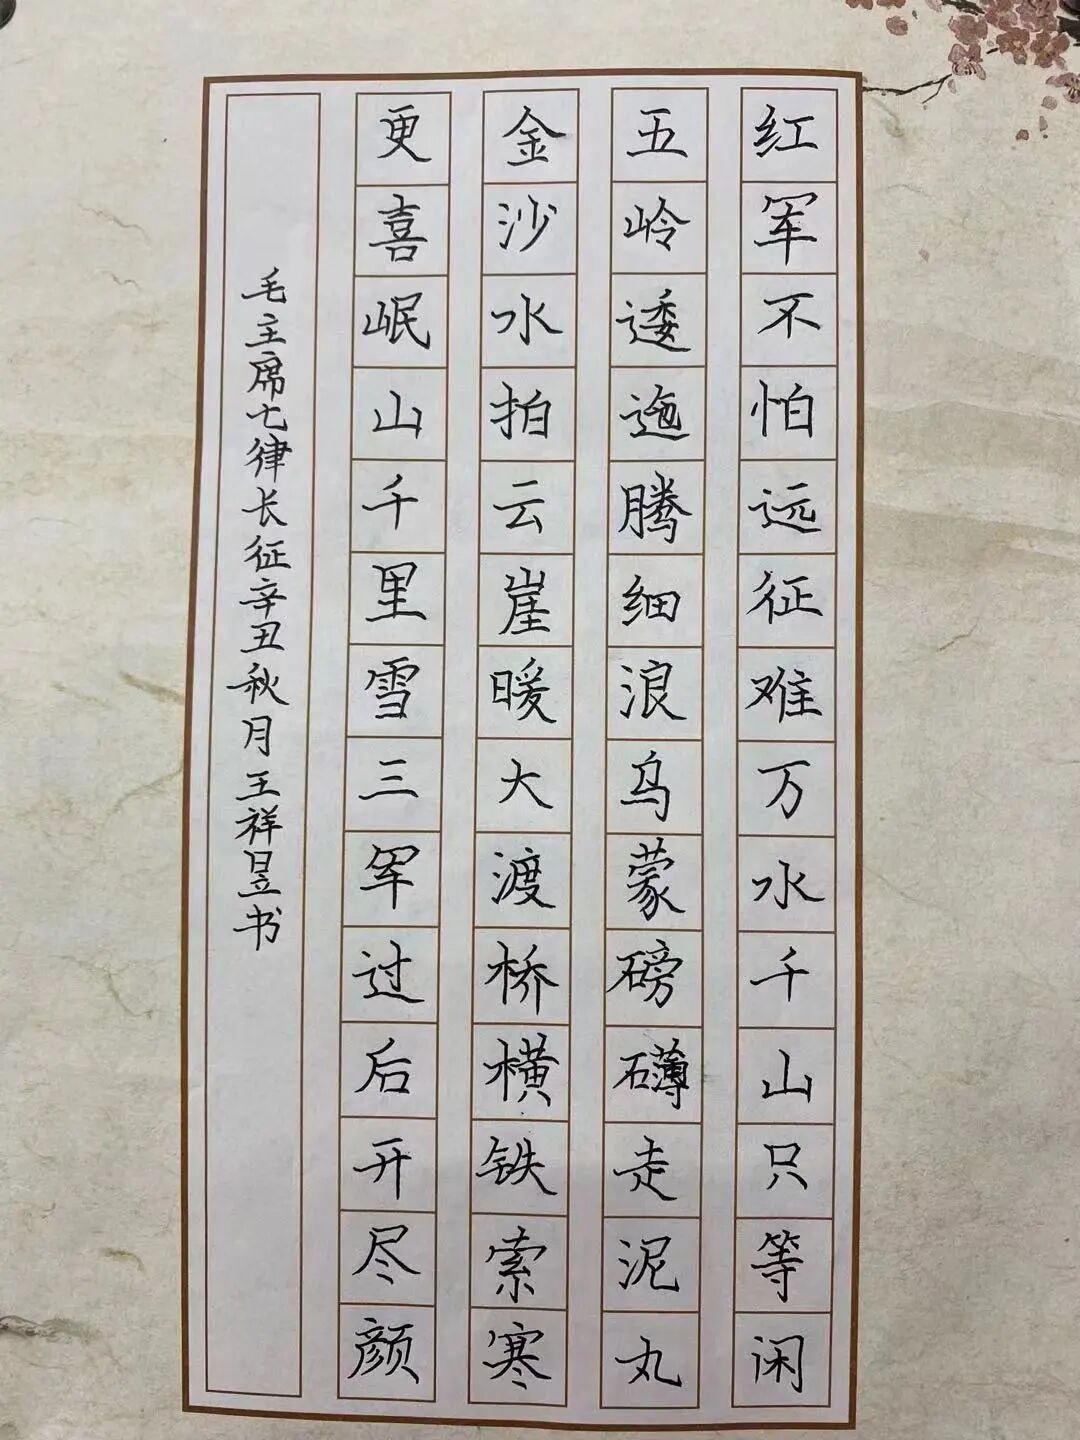 红军不怕远征难万水千山只等闲
五岭逶迤腾细浪乌蒙磅礴走泥丸
金沙水拍云崖暖大渡桥横铁索寒
更喜岷山千里雪三军过后开尽颜
毛主席七律长征辛丑秋月王祥昱书